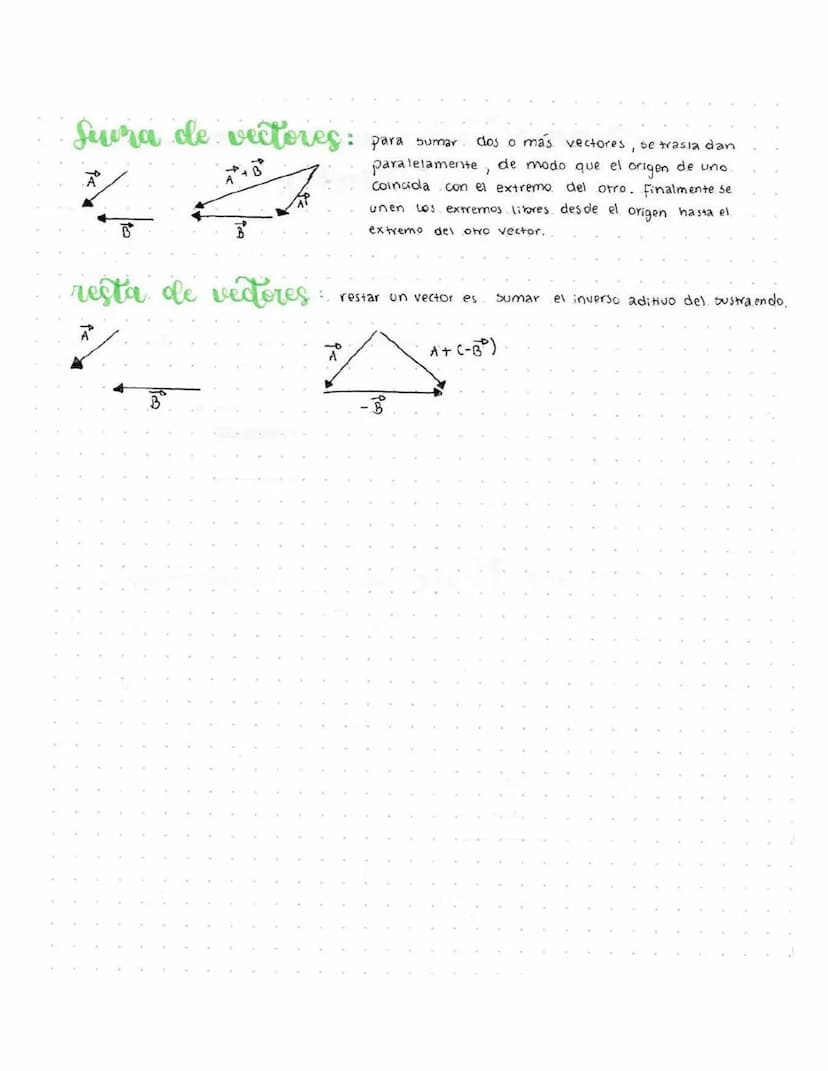 Suma de vectores: para sumar dos o más vectores, se trasladan
paralelamente, de modo que el origen de uno
coincida con el extremo del otro. Finalmente se
unen los extremos libres desde el origen hasta el
extremo del otro vector.
A
B
A + B
A
B
resta de vectores: restar un vector es sumar el inverso aditivo del sustraendo.
A
B
A
A + (-B)
-B